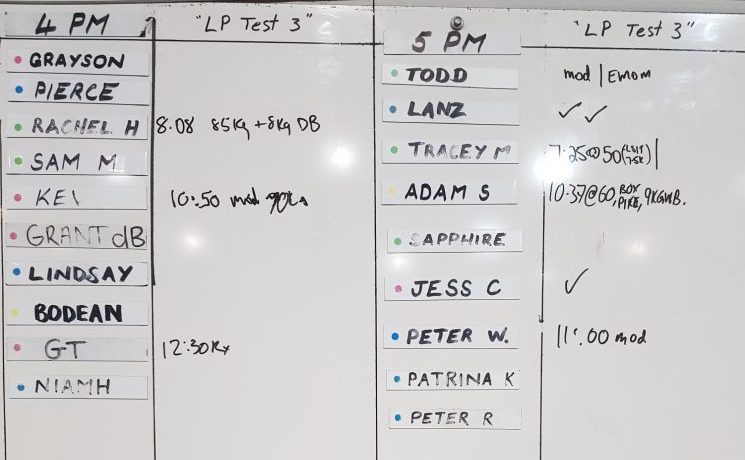 4 PM "LP Test 3"
GRAYSON
PIERCE
RACHEL H 8.08 85kg + 8kg DB
SAM M
KEI 10:50 mod 70kg
GRANT dB
LINDSAY
BODEAN
GT 12:30 Rx
NIAMH
5 PM "LP Test 3"
TODD mod | EMOM
LANZ ✓✓
TRACEY M 7.25@50
ADAM S 10.37@60, BOX PIKE, 9KGWB.
SAPPHIRE
JESS C ✓
PETER W. 11:00 mod
PATRINA K
PETER R